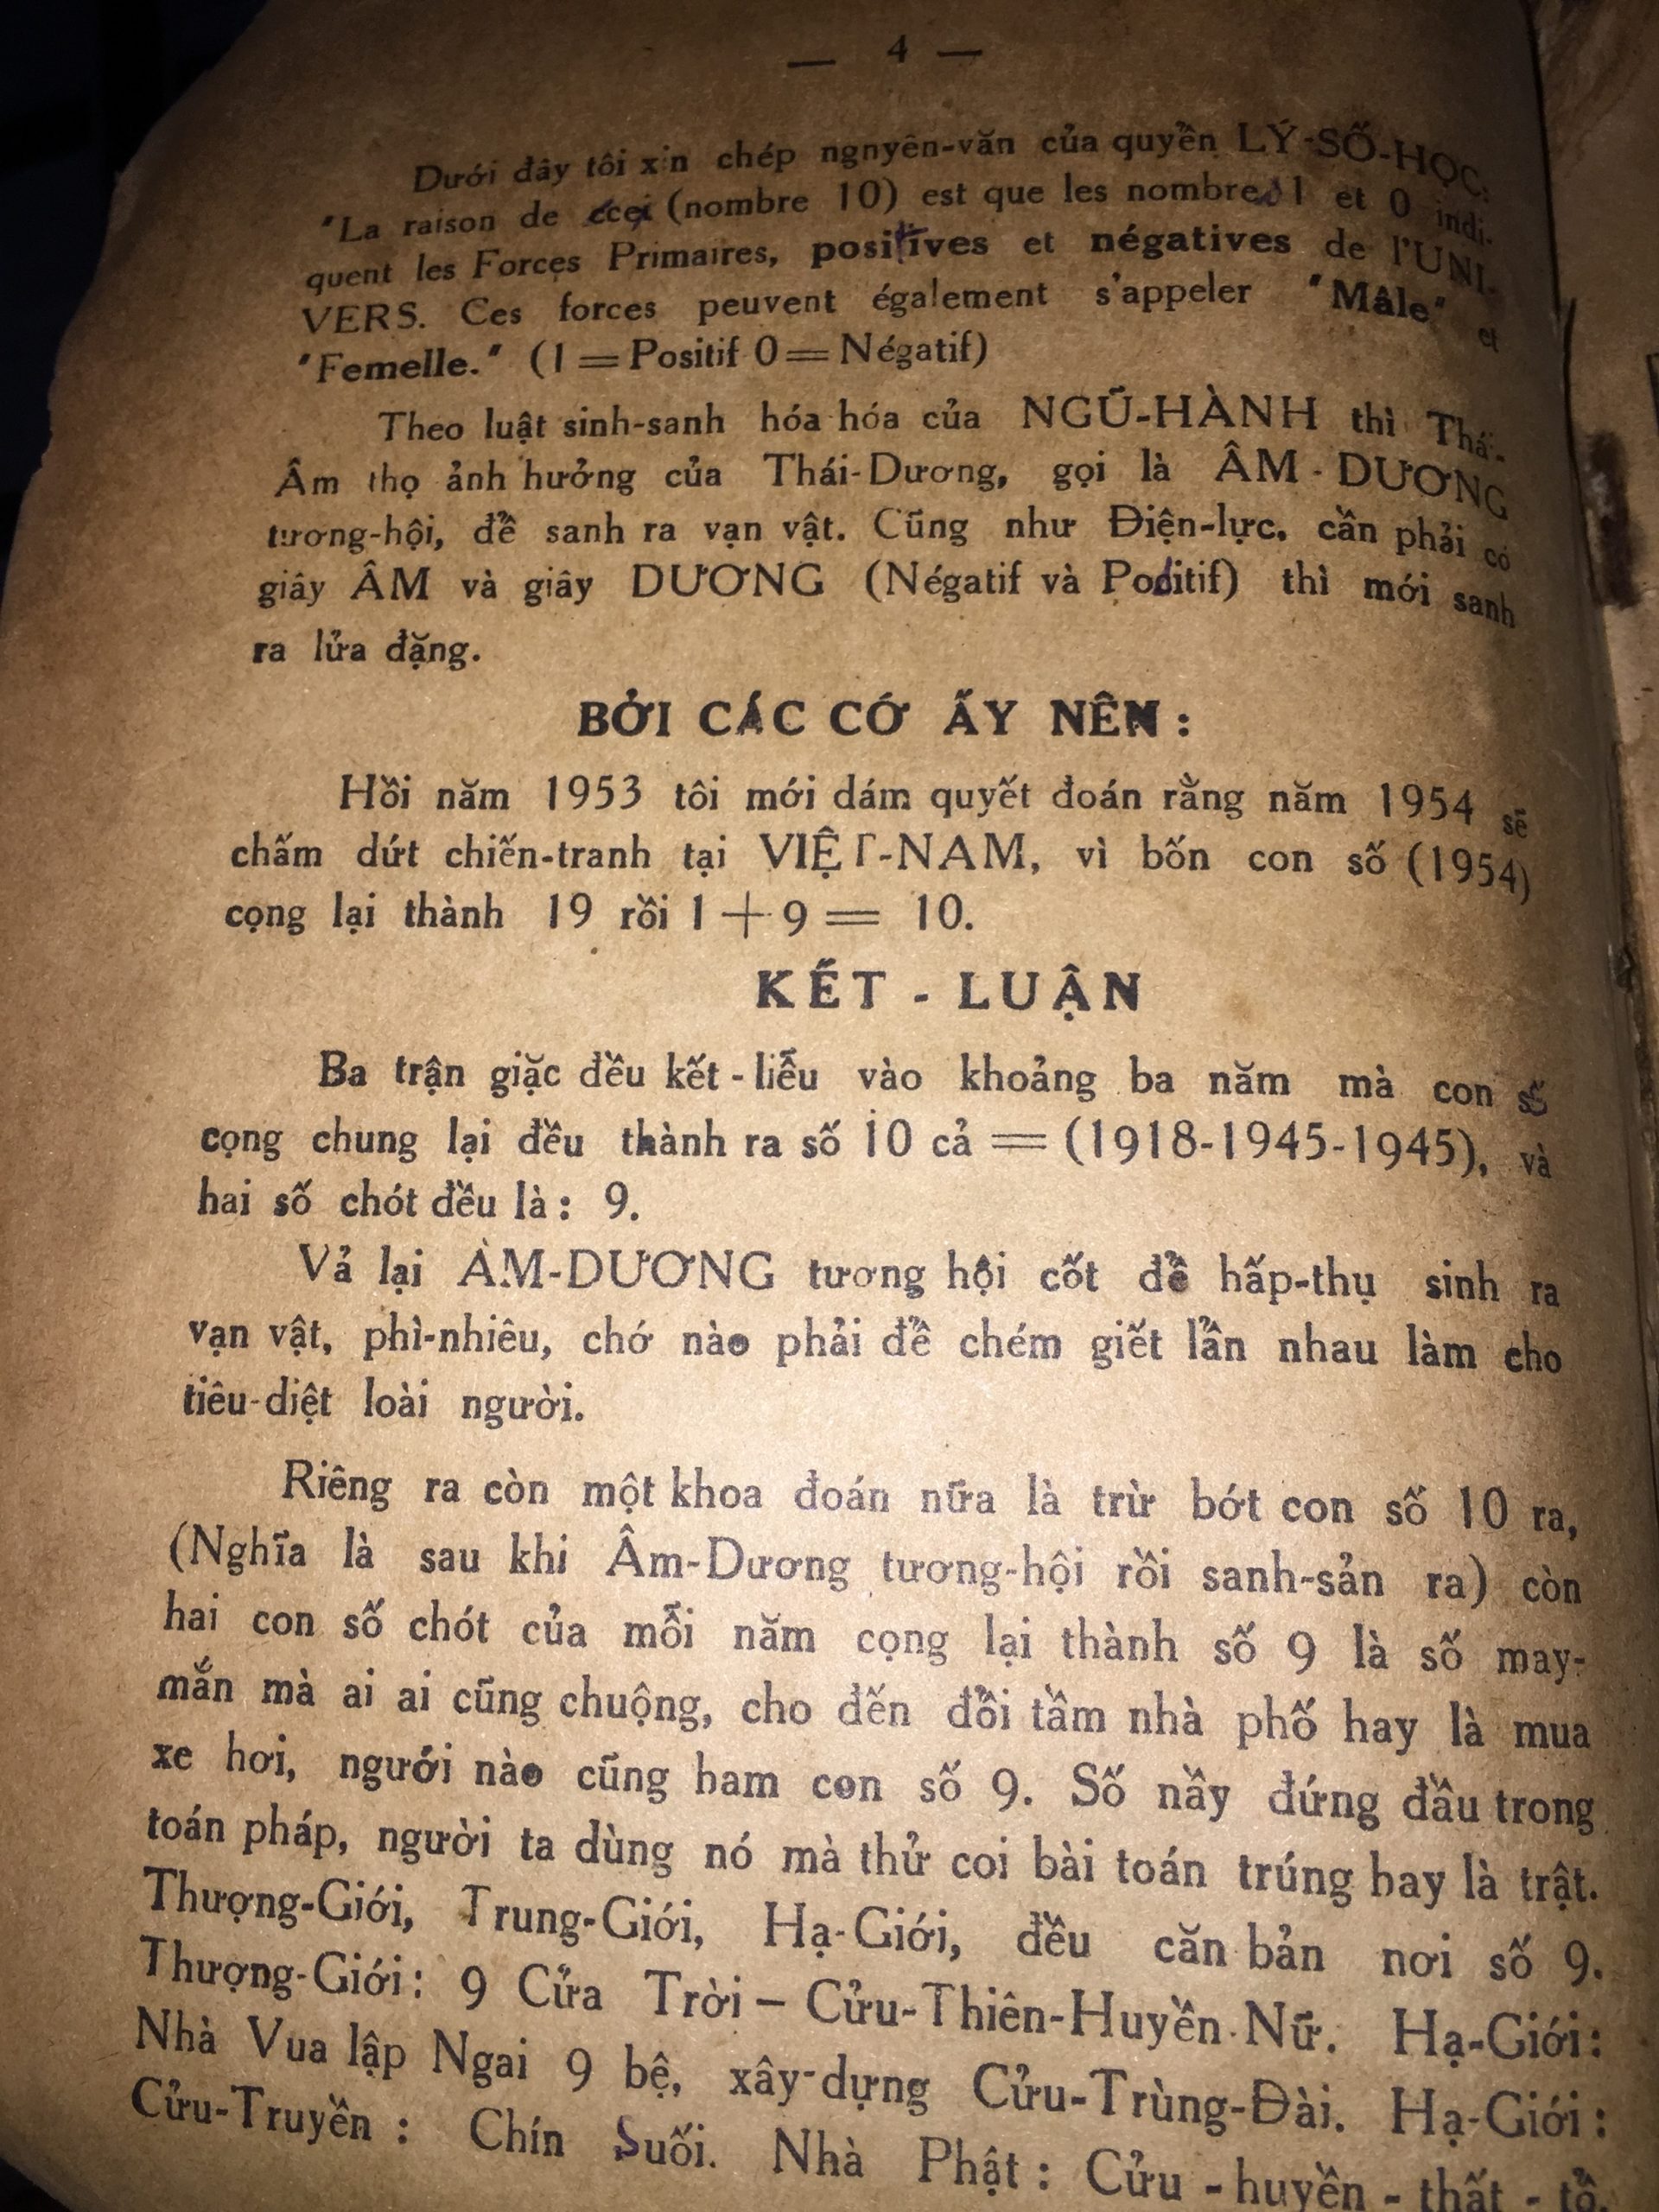 — 4 —
Dưới đây tôi xin chép ngnyên-văn của quyền LÝ-SỐ-HỌC:
"La raison de ceci (nombre 10) est que les nombres 1 et 0 indi-
quent les Forces Primaires, positives et négatives de l'UNI-
VERS. Ces forces peuvent également s'appeler "Mâle" et
"Femelle." (1 = Positif 0 = Négatif)
Theo luật sinh-sanh hóa hóa của NGŨ-HÀNH thì Thái-
Âm thọ ảnh hưởng của Thái-Dương, gọi là ÂM - DƯƠNG
tương-hội, để sanh ra vạn vật. Cũng như Điện-lực, cần phải có
giây ÂM và giây DƯƠNG (Négatif và Positif) thì mới sanh
ra lửa đặng.
BỞI CÁC CỚ ẤY NÊN :
Hồi năm 1953 tôi mới dám quyết đoán rằng năm 1954 sẽ
chấm dứt chiến-tranh tại VIỆT-NAM, vì bốn con số (1954)
cọng lại thành 19 rồi 1 + 9 = 10.
KẾT - LUẬN
Ba trận giặc đều kết - liễu vào khoảng ba năm mà con số
cọng chung lại đều thành ra số 10 cả = (1918-1945-1945), và
hai số chót đều là : 9.
Vả lại ÂM-DƯƠNG tương hội cốt để hấp-thụ sinh ra
vạn vật, phì-nhiêu, chớ nào phải để chém giết lẫn nhau làm cho
tiêu-diệt loài người.
Riêng ra còn một khoa đoán nữa là trừ bớt con số 10 ra,
(Nghĩa là sau khi Âm-Dương tương-hội rồi sanh-sản ra) còn
hai con số chót của mỗi năm cọng lại thành số 9 là số may-
mắn mà ai ai cũng chuộng, cho đến đổi tầm nhà phố hay là mua
xe hơi, người nào cũng ham con số 9. Số nầy đứng đầu trong
toán pháp, người ta dùng nó mà thử coi bài toán trúng hay là trật.
Thượng-Giới, Trung-Giới, Hạ-Giới, đều căn bản nơi số 9.
Thượng-Giới : 9 Cửa Trời – Cửu-Thiên-Huyền-Nữ. Hạ-Giới :
Nhà Vua lập Ngai 9 bệ, xây-dựng Cửu-Trùng-Đài. Hạ-Giới :
Cửu-Truyền : Chín Suối. Nhà Phật : Cửu - huyền - thất - tổ.